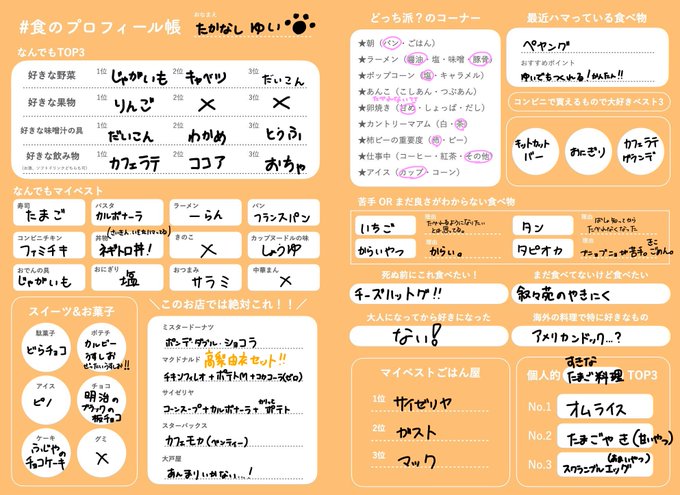 #食のプロフィール帳
おなまえ
たかなし ゆい
なんでもTOP3
好きな野菜 1位 じゃがいも 2位 キャベツ 3位 だいこん
好きな果物 1位 りんご 2位 × 3位 ×
好きな味噌汁の具 1位 だいこん 2位 わかめ 3位 とうふ
好きな飲み物 1位 カフェラテ 2位 ココア 3位 おちゃ
(お酒、ソフトドリンクどちらも可)
なんでもマイベスト
寿司 たまご
パスタ カルボナーラ
ラーメン 一らん
パン フランスパン
コンビニチキン ファミチキ
丼物 (さいきん、いもたべてる)
ネギトロ丼!
きのこ ×
カップヌードルの味 しょうゆ
おでんの具 じゃがいも
おにぎり 塩
おつまみ サラミ
中華まん ×
スイーツ&お菓子
駄菓子 どらチョコ
ポテチ カルビー うすしお ぜったいうすしお!!
アイス ピノ
チョコ 明治の ブラックの 板チョコ
ケーキ ふじやの チョコケーキ
グミ ×
＼このお店では絶対これ！！／
ミスタードーナツ
ポンデ・ダブル・ショコラ
マクドナルド 高梨由衣セット!!
チキンフィレオ+ポテトM+コカコーラ(ゼロ)
サイゼリヤ
コーンスープ+カルボナーラ+ポテト
スターバックス
カフェモカ(ベンティー)
大戸屋
あんまりいかない…!
どっち派？のコーナー
★朝（パン・ごはん）
★ラーメン（醤油・塩・味噌・豚骨）
★ポップコーン（塩・キャラメル）
★あんこ（こしあん・つぶあん）
たべれない!!
★卵焼き（甘め・しょっぱ・だし）
★カントリーマアム（白・茶）
★柿ピーの重要度（柿・ピー）
★仕事中（コーヒー・紅茶・その他）
★アイス（カップ・コーン）
最近ハマっている食べ物
ペヤング
おすすめポイント
ゆいでもつくれる!かんたん!!
コンビニで買えるもので大好きベスト3
キットカット バー
おにぎり
カフェラテ グランデ
苦手 OR まだ良さがわからない食べ物
いちご 理由 たべれるようになりたい とは思ってる。
タン 理由 ばしょ知ってから たべれなくなった
からいやつ 理由 からい。
タピオカ 理由 プニョプニョが苦手。 きこ ごめん。
死ぬ前にこれ食べたい！
チーズハットグ!!
まだ食べてないけど食べたい
叙々苑のやきにく
大人になってから好きになった
ない!
海外の料理で特に好きなもの
アメリカンドック…?
マイベストごはん屋
1位 サイゼリヤ
2位 ガスト
3位 マック
個人的 すきな たまご料理 TOP3
No.1 オムライス
No.2 たまごやき(甘いやつ)
No.3 スクランブルエッグ (あまいやつ)